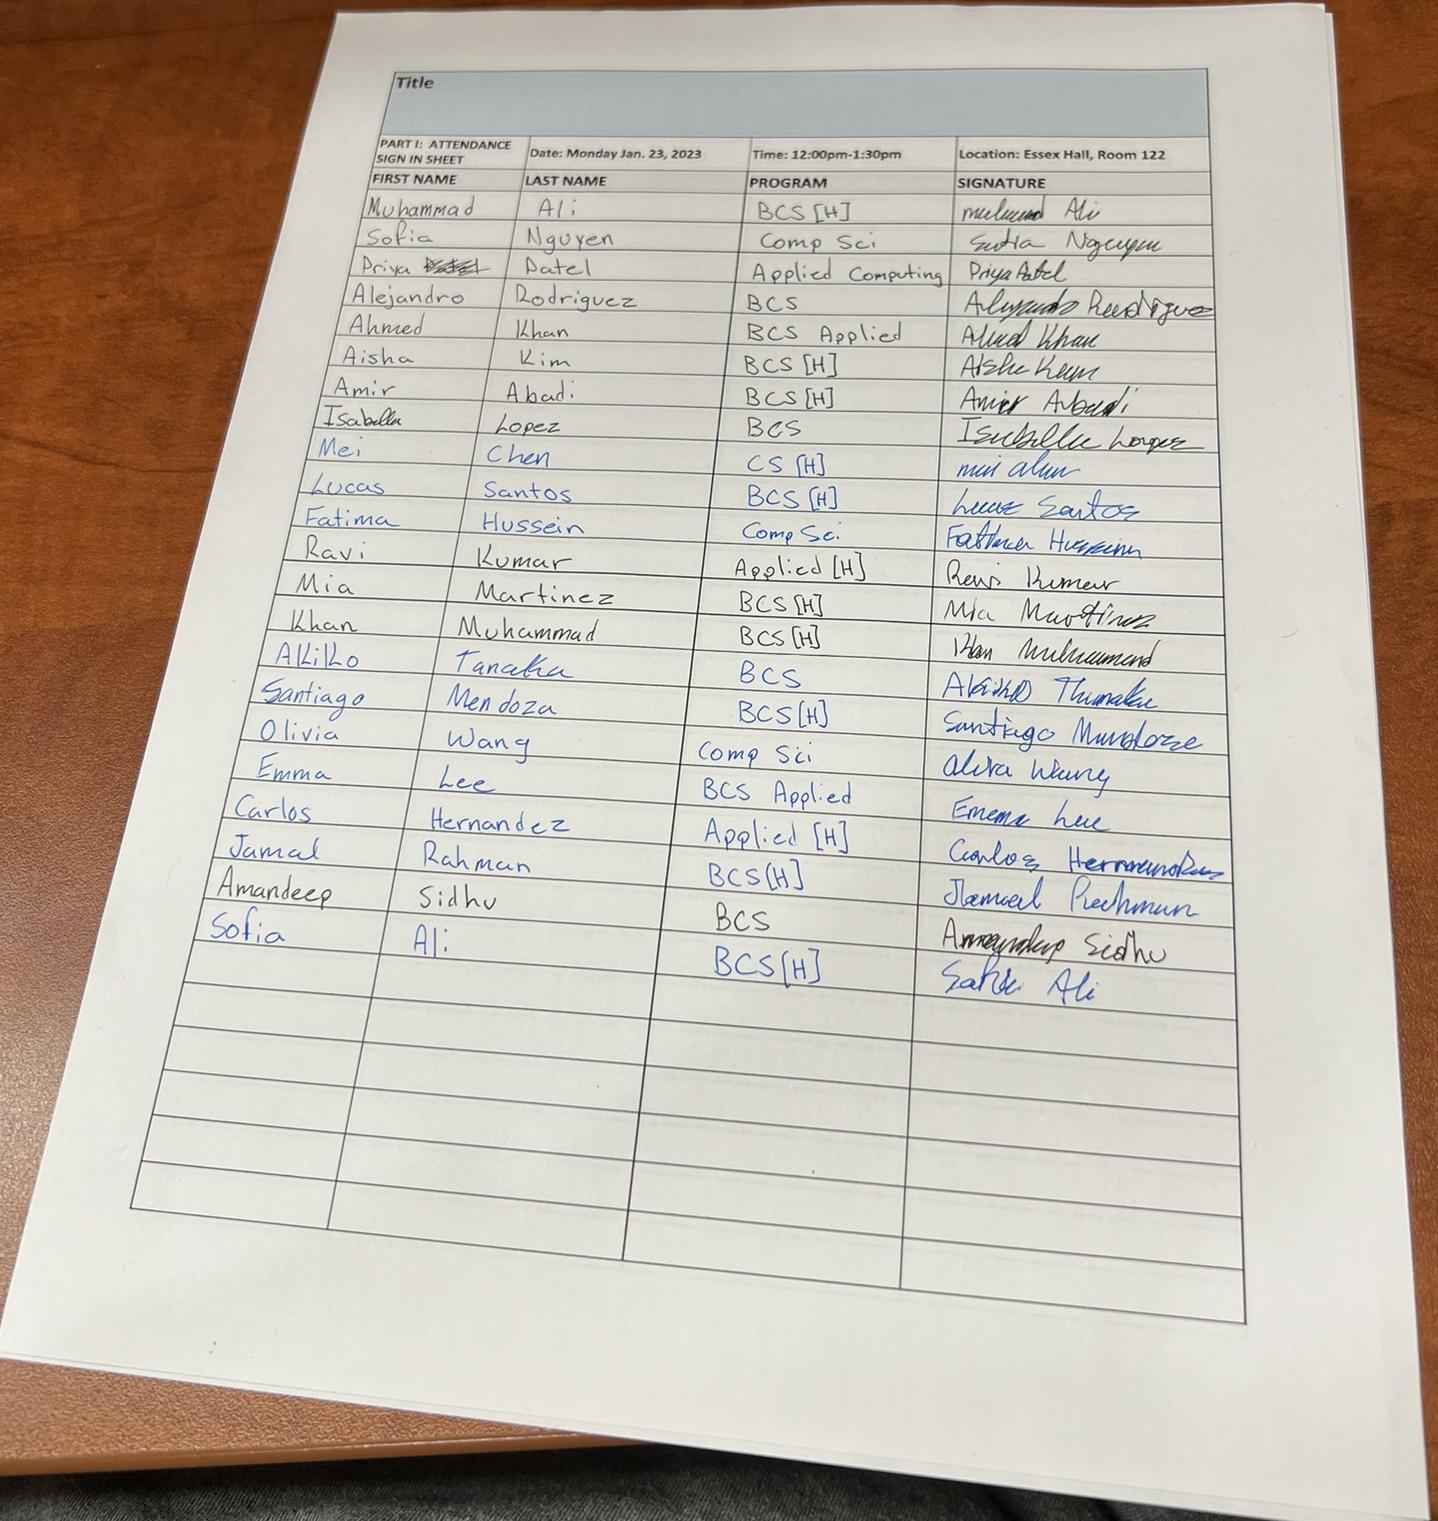 Title
PART I: ATTENDANCE SIGN IN SHEET Date: Monday Jan. 23, 2023 Time: 12:00pm-1:30pm Location: Essex Hall, Room 122
FIRST NAME LAST NAME PROGRAM SIGNATURE
Muhammad Ali BCS [H] Ali
Sofia Nguyen Comp Sci Nguyen
Priya Patel Applied Computing Priya Patel
Alejandro Rodriguez BCS
Ahmed Khan BCS Applied Khan
Aisha Kim BCS [H]
Amir Abadi BCS [H] Amir Abadi
Isabella Lopez BCS Isabella Lopez
Mei Chen CS [H]
Lucas Santos BCS [H] Lucas Santos
Fatima Hussein Comp Sci
Ravi Kumar Applied [H] Kumar
Mia Martinez BCS [H] Mia Martinez
Khan Muhammad BCS [H]
Akiko Tanaka BCS
Santiago Mendoza BCS [H] Santiago
Olivia Wang Comp Sci Wang
Emma Lee BCS Applied Lee
Carlos Hernandez Applied [H] Carlos
Jamal Rahman BCS [H]
Amandeep Sidhu BCS Sidhu
Sofia Ali BCS [H] Ali